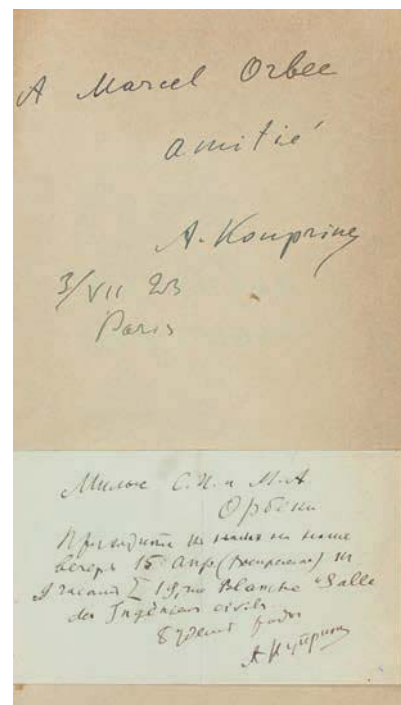 A Marcel Orbec
amitié
A. Kouprine
3/VII 23
Paris
Милые С. И. и М. А
Орбеки
Приходите на
вечеръ 15 апр. (воскресенье) въ
19, rue Blanche "Salle
des Ingénieurs civils
Будемъ рады
А Купринъ